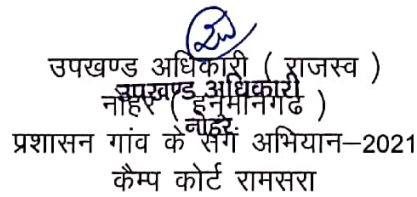 उपखण्ड अधिकारी ( राजस्व )
उपखण्ड अधिकारी
नोहर ( हनुमानगढ )
नोहर
प्रशासन गांव के संग अभियान–2021
कैम्प कोर्ट रामसरा